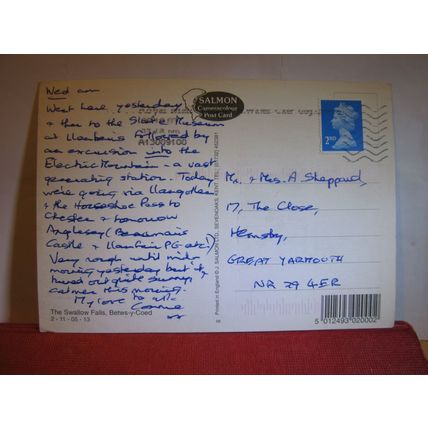 Wed am
Went here yesterday
& then to the Slate Museum
at Llanberis followed by
an excursion into the
Electric Mountain - a vast
generating station. Today
we're going via Llangollen
& the Horseshoe Pass to
Chester & tomorrow
Anglesey (Beaumaris
Castle & Llanfair PG etc.)
Very rough until mid-
morning yesterday but it
turned out quite sunny,
calmer this morning.
My love to all-
Connie
The Swallow Falls, Betws-y-Coed
2 - 11 - 05 - 13
SALMON
Cameracolour
Post Card
A13009100
Printed in England © J. SALMON LTD., SEVENOAKS, KENT. TEL: (01732) 452381
2ND
Mr. & Mrs. A Sheppard,
17, The Close,
Hemsby,
GREAT YARMOUTH
NR 29 4ER
5 012493 020002